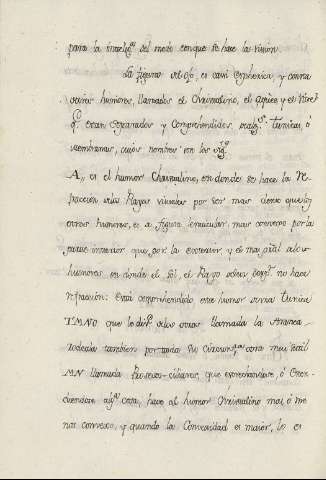 para la inteligª del modo conque se hace la vision
La figura del ojo, es casi Espherica, y consta
varios humores, llamados el Christalino, el aqueo y el vitreo
qᵉ estan separados y Comprehendidos tunicas, ó
membranas, cuyos nombres son los sigˢ
A, es el humor Christalino, en donde se hace la re
fraccion de los Rayos visuales por ser mas denso que los
otros humores, es de figura lenticular, mas convexo por la
parte interior que por la exterior y el mas sutil de los
humores en donde el Rayo no hace
refraccion: Está comprehendido este humor una tunica
TMNO que le divᵉ de los otros llamada la Aranea
rodeada tambien por toda su Circunfª con mui sutil
MN llamada Processo-ciliares, que estrechandose, ó Exten-
diendose algª cosa, hace al humor Christalino mas, ó me
nos convexo, y quando la Convexidad es maior, los